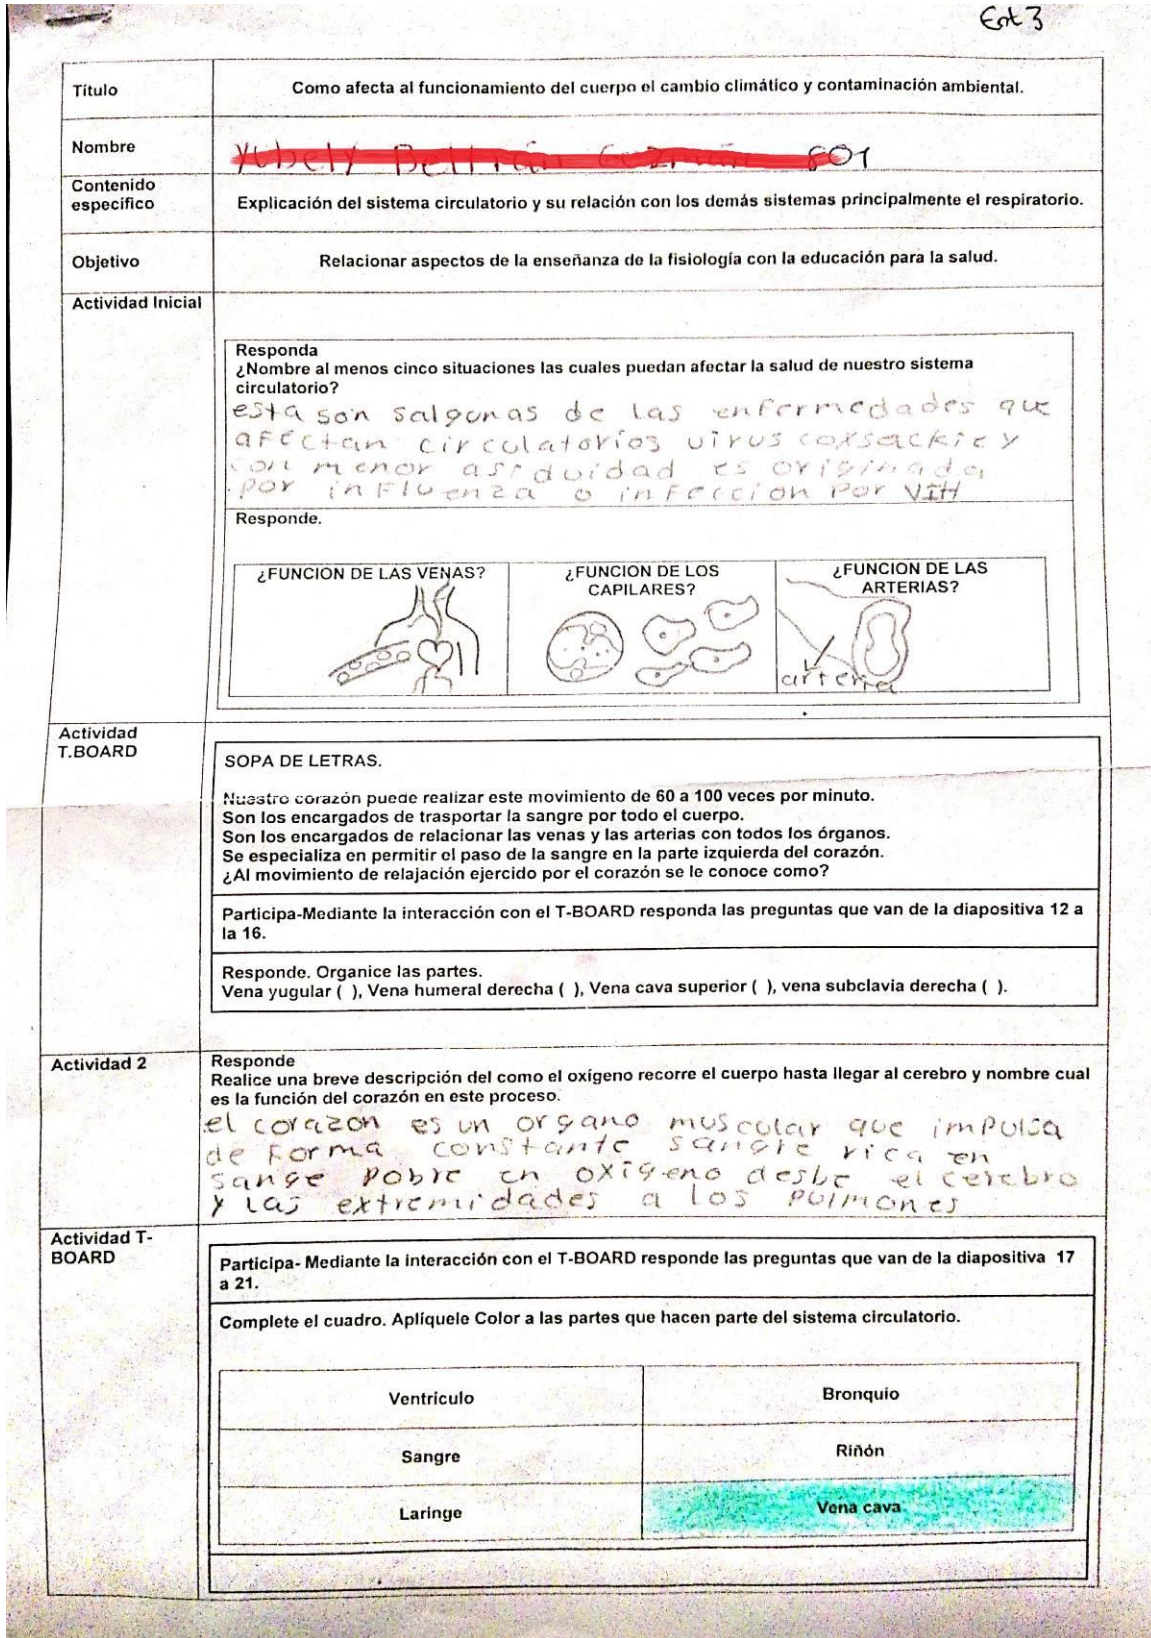 Ent 3
Título
Como afecta al funcionamiento del cuerpo el cambio climático y contaminación ambiental.
Nombre
801
Contenido
específico
Explicación del sistema circulatorio y su relación con los demás sistemas principalmente el respiratorio.
Objetivo
Relacionar aspectos de la enseñanza de la fisiología con la educación para la salud.
Actividad Inicial
Responda
¿Nombre al menos cinco situaciones las cuales puedan afectar la salud de nuestro sistema
circulatorio?
esta son salgunas de las enfermedades que
afectan circulatoríos virus coxsackie y
con menor asiduidad es originada
por influenza o infeccion por VIH
Responde.
¿FUNCION DE LAS VENAS?
¿FUNCION DE LOS
CAPILARES?
¿FUNCION DE LAS
ARTERIAS?
arteria
Actividad
T.BOARD
SOPA DE LETRAS.
Nuestro corazón puede realizar este movimiento de 60 a 100 veces por minuto.
Son los encargados de trasportar la sangre por todo el cuerpo.
Son los encargados de relacionar las venas y las arterias con todos los órganos.
Se especializa en permitir el paso de la sangre en la parte izquierda del corazón.
¿Al movimiento de relajación ejercido por el corazón se le conoce como?
Participa-Mediante la interacción con el T-BOARD responda las preguntas que van de la diapositiva 12 a
la 16.
Responde. Organice las partes.
Vena yugular ( ), Vena humeral derecha ( ), Vena cava superior ( ), vena subclavia derecha ( ).
Actividad 2
Responde
Realice una breve descripción del como el oxígeno recorre el cuerpo hasta llegar al cerebro y nombre cual
es la función del corazón en este proceso.
el corazon es un organo muscular que impulsa
de forma constante sangre rica en
sange pobre en oxígeno desbe el cerebro
y las extremidades a los pulmones
Actividad T-
BOARD
Participa- Mediante la interacción con el T-BOARD responde las preguntas que van de la diapositiva 17
a 21.
Complete el cuadro. Aplíquele Color a las partes que hacen parte del sistema circulatorio.
Ventrículo
Bronquio
Sangre
Riñón
Laringe
Vena cava